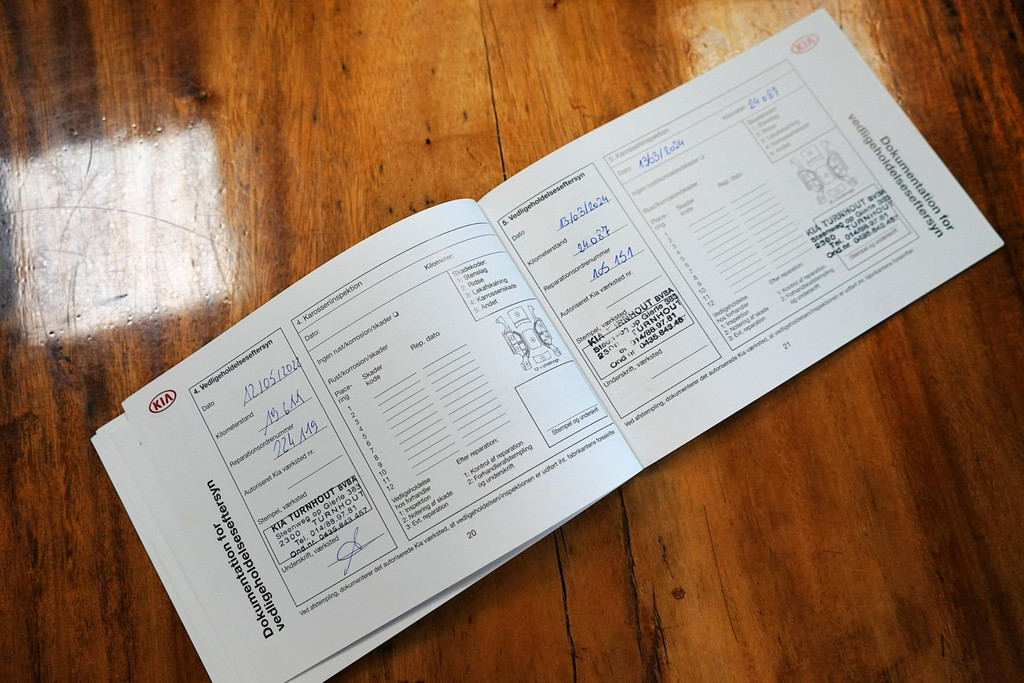 KIA
Dokumentation for
vedligeholdelseseftersyn
4. Vedligeholdelseseftersyn
Dato
Kilometerstand
19 611
Reparationsordrenummer
224 119
Autoriseret Kia værksted nr.
Stempel, værksted
KIA TURNHOUT BVBA
Steenweg op Gierle 383
2300 - TURNHOUT
Tel. 014/88.97.81
Ond.nr. 0435.843.457
Underskrift, værksted
4. Karosseriinspektion
Dato:
Kilometer:
Ingen rust/korrosion/skader
Rust/korrosion/skader
Skadekoder:
1: Stenslag
2: Ridse
3: Lakafskalning
4: Karosseriskade
5: Andet
Place-
ring
Skader
kode
Rep. dato
1
2
3
4
5
6
7
8
9
10
11
12
Vedligeholdelse
hos forhandler
1: Inspektion
2: Notering af skade
3: Evt. reparation
Efter reparation:
1: Kontrol af reparation
2: Forhandlerafstempling
og underskrift
Stempel og underskrift
Ved afstempling, dokumenterer det autoriserede Kia værksted, at vedligeholdelsen/inspektionen er udført iht. fabrikantens forskrifter
20
5. Vedligeholdelseseftersyn
Dato
13/03/2024
Kilometerstand
24087
Reparationsordrenummer
105 151
Autoriseret Kia værksted nr.
Stempel, værksted
KIA TURNHOUT BVBA
Steenweg op Gierle 383
2300 - TURNHOUT
Tel. 014/88.97.81
Ond.nr. 0435.843.457
Underskrift, værksted
5. Karosseriinspektion
Dato:
13/03/2024
Kilometer:
24087
Ingen rust/korrosion/skader
Rust/korrosion/skader
Skadekoder:
1: Stenslag
2: Ridse
3: Lakafskalning
4: Karosseriskade
5: Andet
Place-
ring
Skader
kode
Rep. dato
1
2
3
4
5
6
7
8
9
10
11
12
Vedligeholdelse
hos forhandler
1: Inspektion
2: Notering af skade
3: Evt. reparation
Efter reparation:
1: Kontrol af reparation
2: Forhandlerafstempling
og underskrift
KIA TURNHOUT BVBA
Steenweg op Gierle 383
2300 - TURNHOUT
Tel. 014/88.97.81
Ond.nr. 0435.843.457
Stempel og underskrift
Ved afstempling, dokumenterer det autoriserede Kia værksted, at vedligeholdelsen/inspektionen er udført iht. fabrikantens forskrifter
21
KIA
Dokumentation for
vedligeholdelseseftersyn